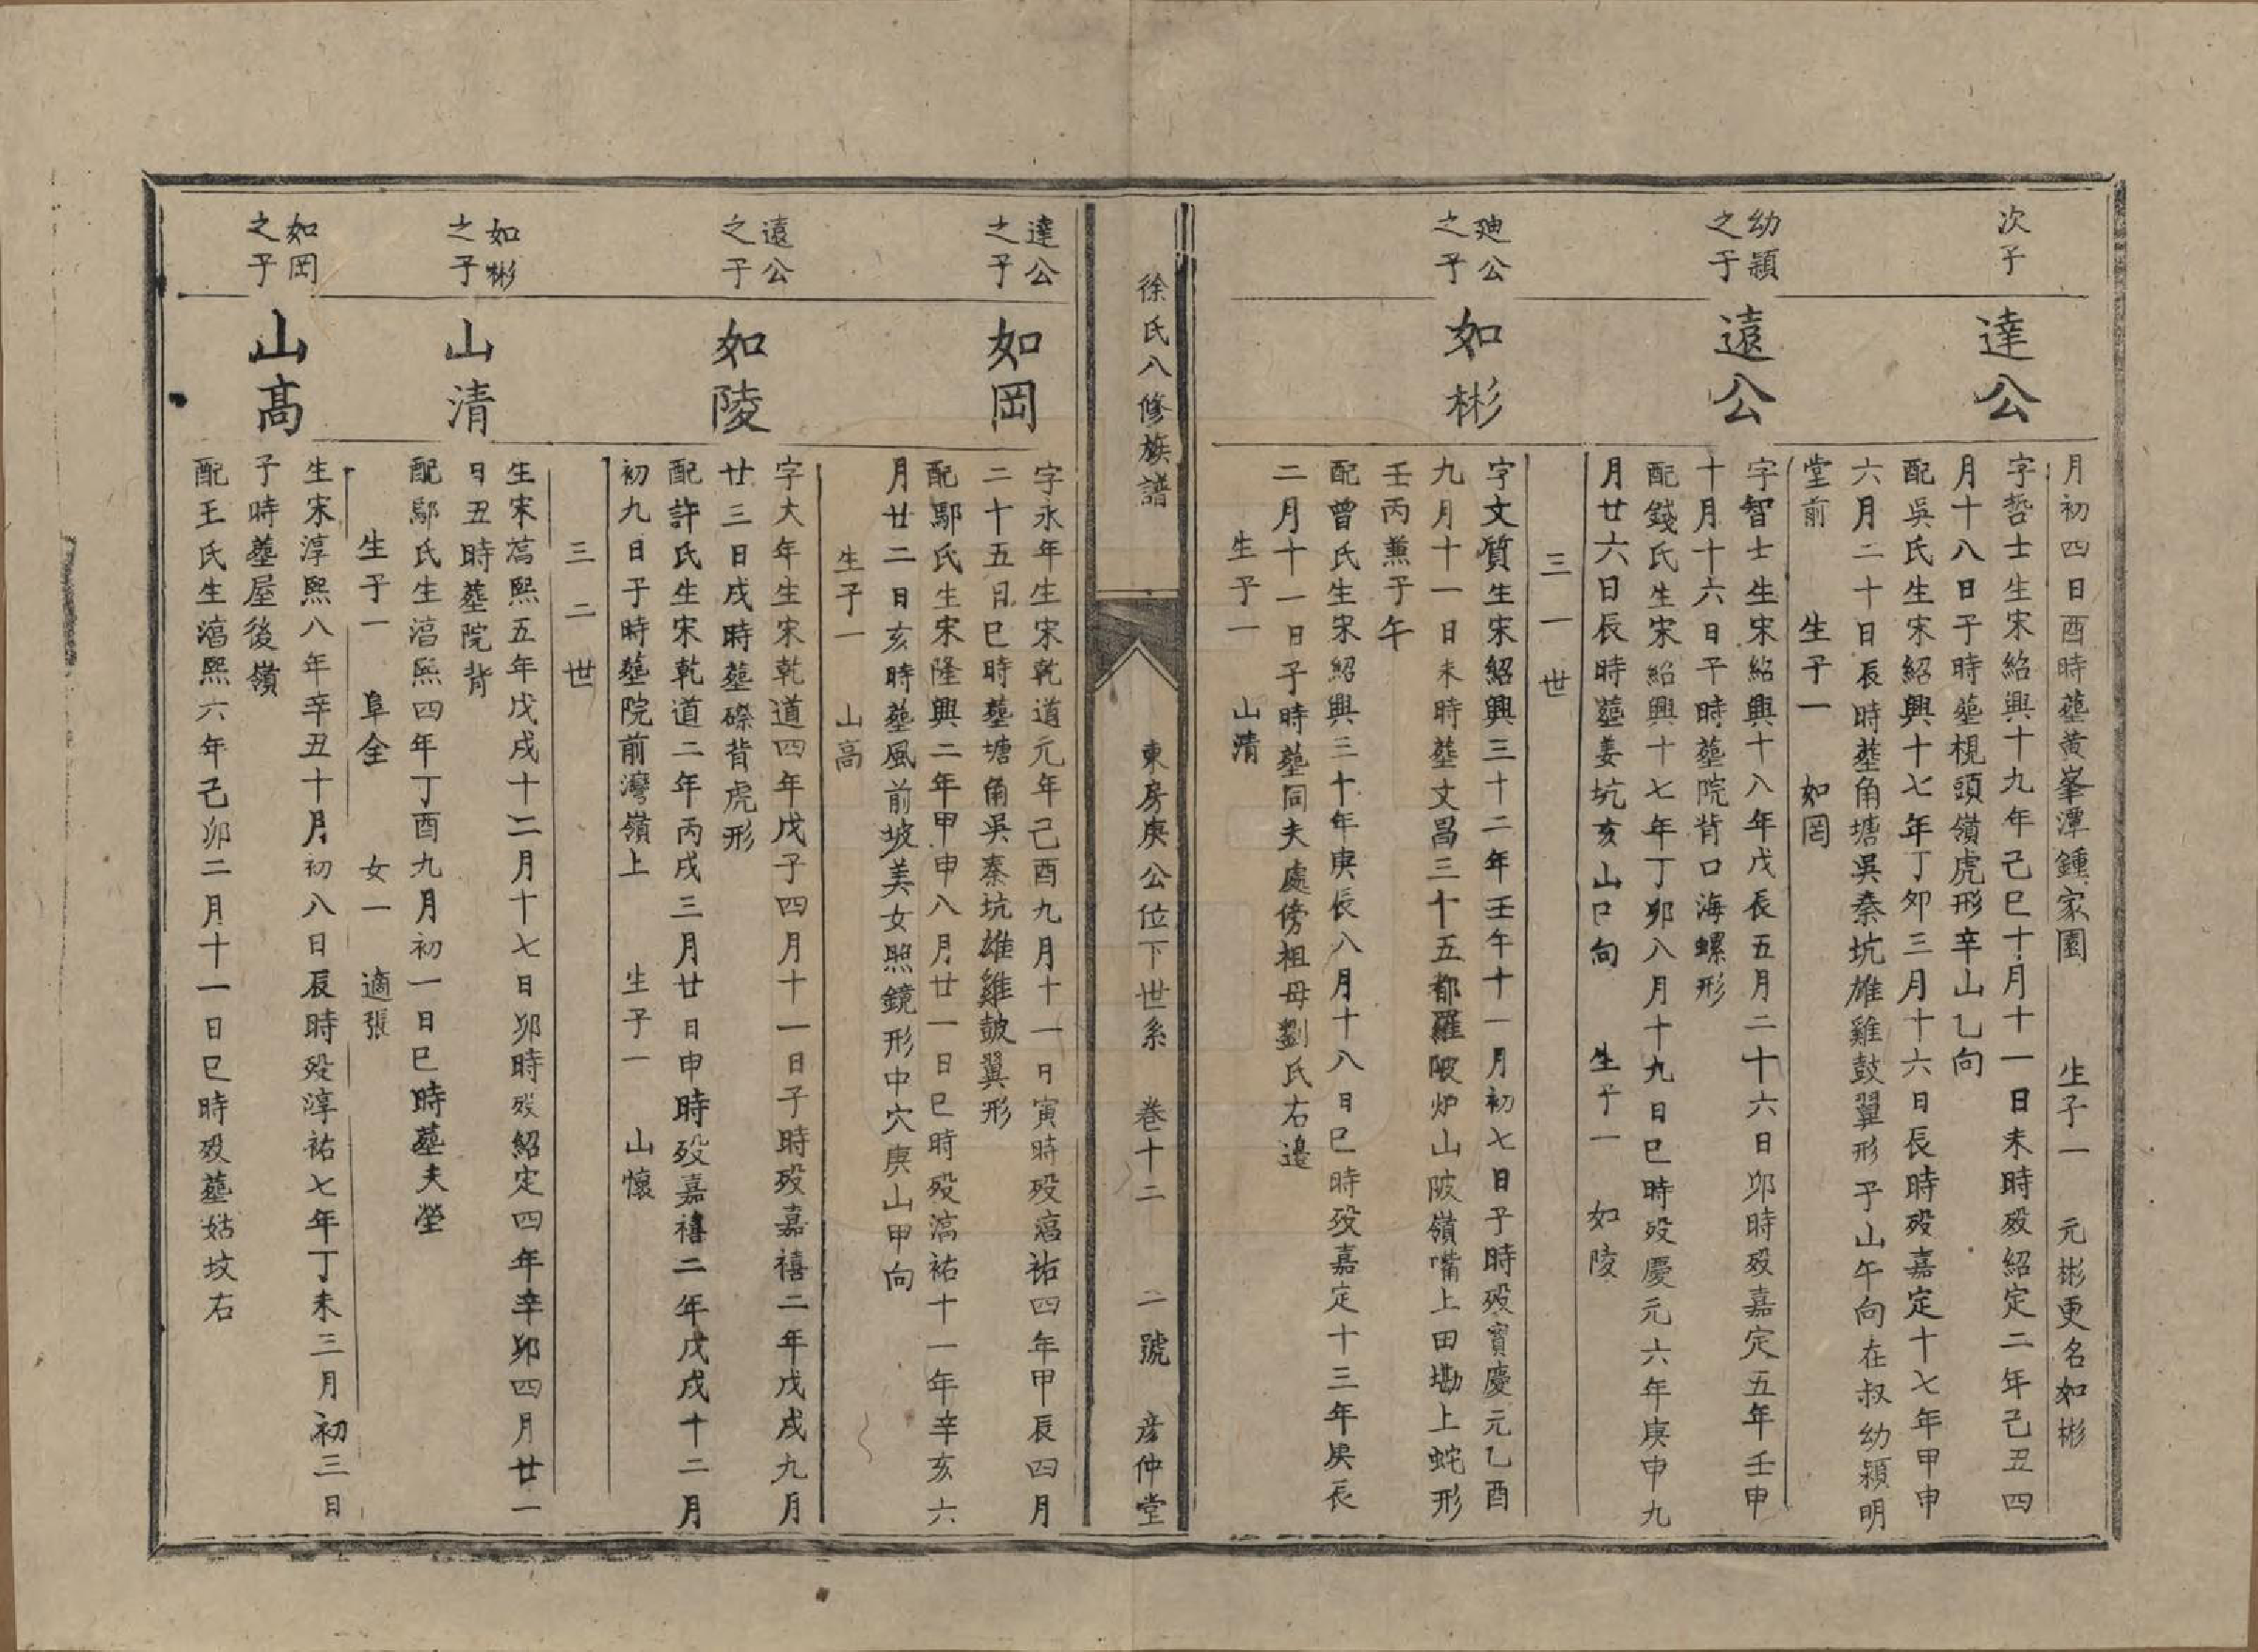 月初四日酉時塟黄峯潭鍾家園 生子一 元彬更名如彬
次子
達公
字哲士生宋紹興十九年己巳十月十一日未時殁紹定二年己丑四
月十八日子時塟梘頭嶺虎形辛山乙向
配吳氏生宋紹興十七年丁夘三月十六日辰時殁嘉定十七年甲申
六月二十日辰時塟角塘吳秦坑雄雞鼓翼形子山午向在叔幼穎明
堂前 生子一 如岡
幼穎
之子
遠公
字智士生宋紹興十八年戊辰五月二十六日夘時殁嘉定五年壬申
十月十六日午時塟院背口海螺形
配錢氏生宋紹興十七年丁夘八月十九日巳時殁慶元六年庚申九
月廿六日辰時塟姜坑亥山口向 生子一 如陵
三一世
廸公
之子
如彬
字文質生宋紹興三十二年壬午十一月初七日子時殁寳慶元乙酉
九月十一日未時塟文昌三十五都羅陂炉山陂嶺嘴上田墈上蛇形
壬丙兼子午
配曾氏生宋紹興三十年庚辰八月十八日巳時殁嘉定十三年庚辰
二月十一日子時塟同夫處傍祖母劉氏右邉
生子一 山清
徐氏八修族譜
東房庚公位下世系 卷十二 二號 彦仲堂
達公
之子
如岡
字永年生宋乾道元年己酉九月十一日寅時殁湻祐四年甲辰四月
二十五日巳時塟塘角吳秦坑雄雞皷翼形
配鄢氏生宋隆興二年甲申八月廿一日巳時殁湻祐十一年辛亥六
月廿二日亥時塟風前坡美女照鏡形中穴庚山甲向
生子一 山高
遠公
之子
如陵
字大年生宋乾道四年戊子四月十一日子時殁嘉禧二年戊戌九月
廿三日戌時塟磜背虎形
配許氏生宋乾道二年丙戌三月廿日申時殁嘉禧二年戊戌十二月
初九日子時塟院前灣嶺上 生子一 山懷
三二世
如彬
之子
山清
生宋湻熙五年戊戌十二月十七日夘時殁紹定四年辛夘四月廿一
日丑時塟院背
配鄢氏生湻熙四年丁酉九月初一日巳時塟夫塋
生子一 阜全 女一 適張
如岡
之子
山高
生宋淳熙八年辛丑十月初八日辰時殁淳祐七年丁未三月初三日
子時塟屋後嶺
配王氏生湻熙六年己夘二月十一日巳時殁塟姑坟右